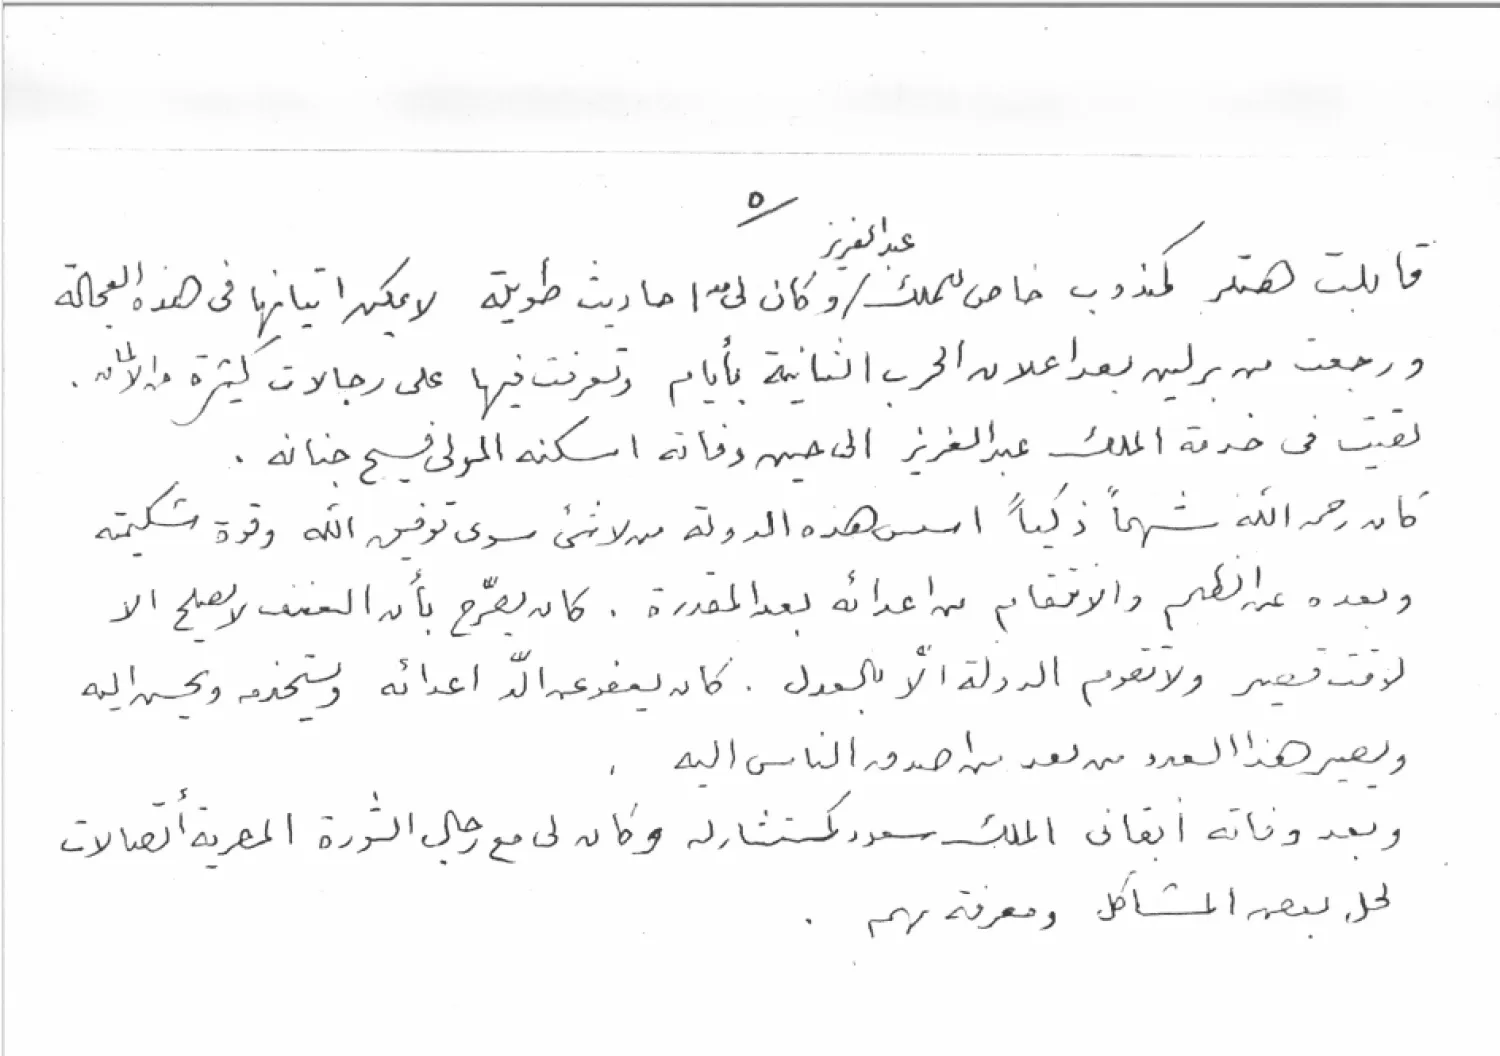 ٥
قابلت هتلر كمندوب خاص للملك / عبدالعزيز وكان لي معه احاديث طويلة لا يمكن اتيانها في هذه العجالة
ورجعت من برلين بعد اعلان الحرب الثانية بأيام وتعرفت فيها على رجالات كثيرة من الالمان .
بقيت في خدمة الملك عبدالعزيز الى حين وفاته اسكنه المولى فسيح جنانه .
كان رحمه الله شهماً ذكياً اسس هذه الدولة من لا شئ سوى توفيق الله وقوة شكيمته
وبعده عن الظلم والانتقام من اعدائه بعد المقدرة . كان يصرّح بأن العنف لا يصلح الا
لوقت قصير ولا تقوم الدولة الّا بالعدل . كان يعفو عن الدّ اعدائه ويستخدمه ويحسن اليه
ويصير هذا العدو من بعد من اصدق الناس اليه .
وبعد وفاته أبقاني الملك سعود كمستشار له وكان لي مع رجال الثورة المصرية أتصالات
لحل بعض المشاكل ومعرفة بهم .